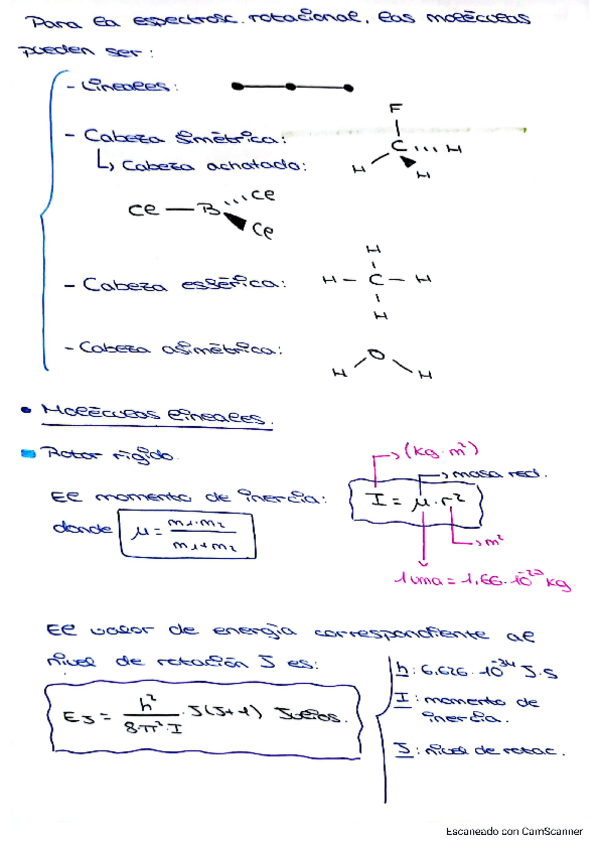 Para la espectrosc. rotacional, las moléculas
pueden ser:
- Lineales:
- Cabeza simétrica:
↳ Cabeza achatado:
F
C
H
H
H
Cl — B
Cl
Cl
- Cabeza esférica:
H
H — C — H
H
- Cabeza asimétrica:
O
H
H
• Moléculas lineales.
Rotor rígido.
El momento de inercia:
donde μ = m₁·m₂ / m₁+m₂
(kg·m²)
masa red.
I = μ·r²
m²
1uma = 1,66·10⁻²⁷ kg
El valor de energía correspondiente al
nivel de rotación J es:
E_J = h² / 8·π²·I · J(J+1) Julios.
h: 6,626·10⁻³⁴ J·s
I: momento de
inercia.
J: nivel de rotac.
Escaneado con CamScanner